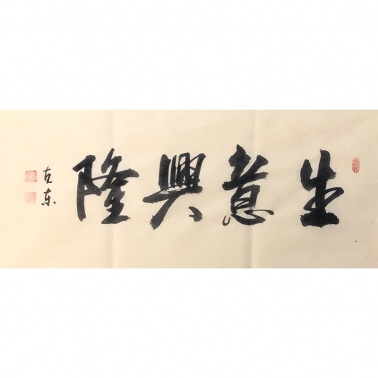 生意興隆
古东